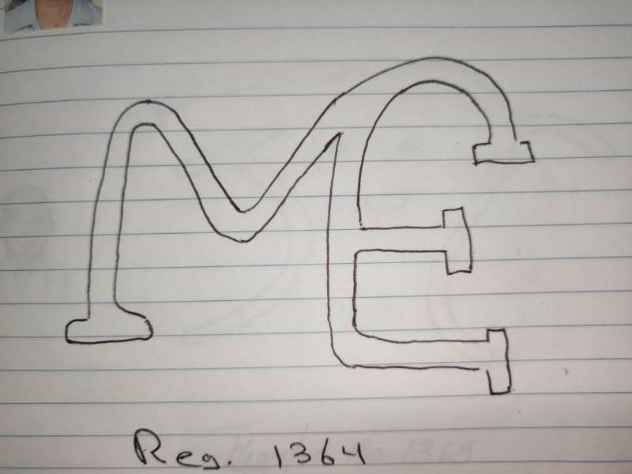 ME
Reg. 1364